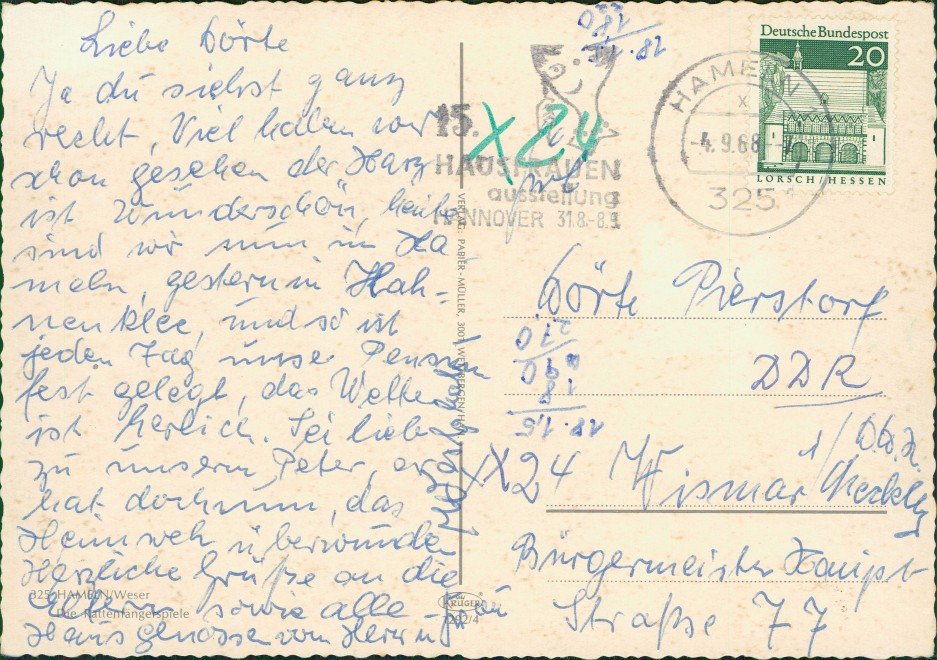 Liebe Dörte
Ja du siehst ganz
recht, Viel haben wir
schon gesehen der Harz
ist Wunderschön, heute
sind wir nun in Ha
meln, gestern in Hah-
nenklee, und so ist
jeden Tag unser Pensum
fest gelegt, das Wetter
ist herlich. Sei lieb
zu unserm Peter, er
hat doch nun, das
Heimweh überwunden
Herzliche Grüße an die
Eltern sowie alle
Hausgenossen von Herrn u Frau
325 HAMELN/Weser
Die Rattenfängerspiele
VERLAG: PAPIER-MÜLLER, 300
KRÜGER
7292/4
15.
HAUSFRAUEN
ausstellung
HANNOVER 31.8.-8.9.
X24
HAMELN 1
x
-4.9.68-
325
Deutsche Bundespost
20
LORSCH/HESSEN
Dörte Pierstorf
DDR
X24 Wismar/Mecklbg
Bürgermeister Haupt
Straße 77